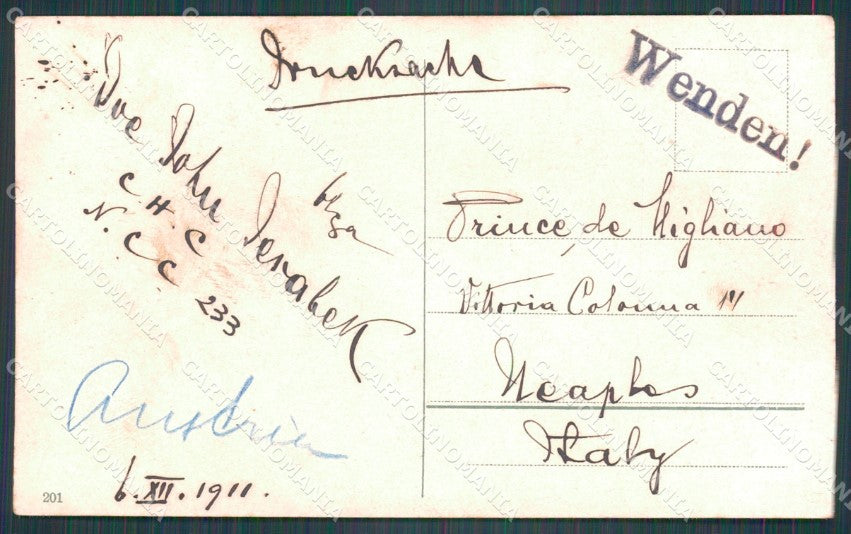 Drucksache
Wenden!
John Jerabek
C H. C
N. C C 233
Austria
6. XII. 1911.
201
Prince de Migliano
Vittoria Colonna
Neaples
Italy
CARTOLINOMANIA